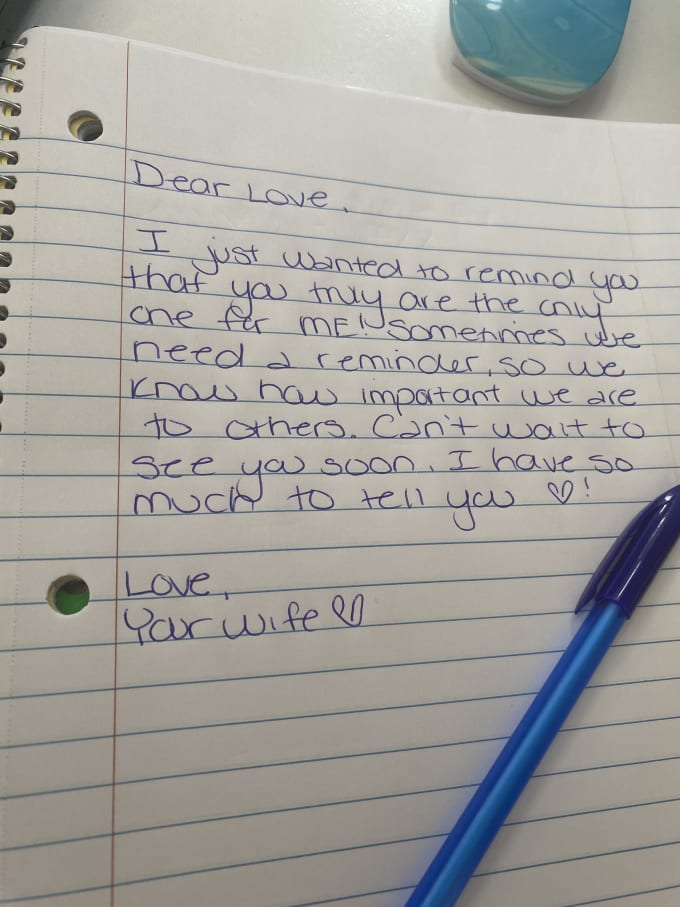 Dear Love,
I just wanted to remind you
that you truly are the only
one for ME! Sometimes we
need a reminder, so we
know how important we are
to others. Can't wait to
see you soon. I have so
much to tell you ♡!
Love,
Your wife ♡